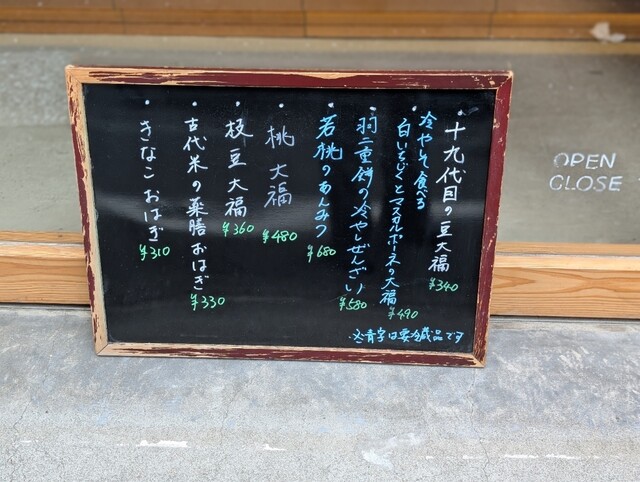 ・十九代目の豆大福
¥340
・冷やして食べる
白いちじくとマスカルポーネの大福
¥490
・羽二重餅の冷やしぜんざい
¥580
・若桃のあんみつ
¥680
・桃大福
¥480
・枝豆大福
¥360
・古代米の薬膳おはぎ
¥330
・きなこおはぎ
¥310
※青字は要冷蔵品です
OPEN
CLOSE